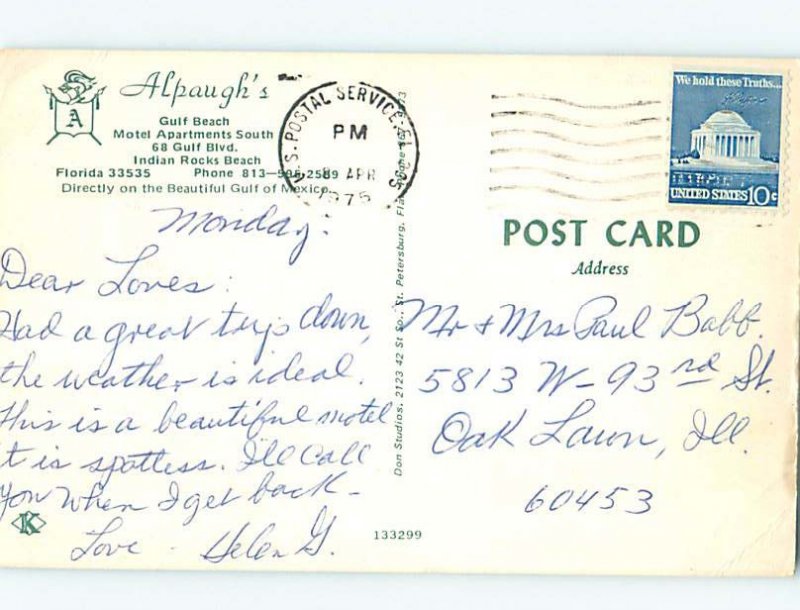 Alpaugh's
A
Gulf Beach
Motel Apartments South
68 Gulf Blvd.
Indian Rocks Beach
Florida 33535 Phone 813-595-2589
Directly on the Beautiful Gulf of Mexico
U.S. POSTAL SERVICE, FL
PM
8 APR
1975
We hold these Truths...
UNITED STATES 10c
Monday.
Dear Loves:
Had a great trip down,
the weather is ideal.
This is a beautiful motel
it is spotless. I'll call
you when I get back -
Love - Helen G.
K
Don Studios, 2123 42 St So., St. Petersburg, Fla.
133299
POST CARD
Address
Mr + Mrs Paul Babb.
5813 W- 93rd St.
Oak Lawn, Ill.
60453